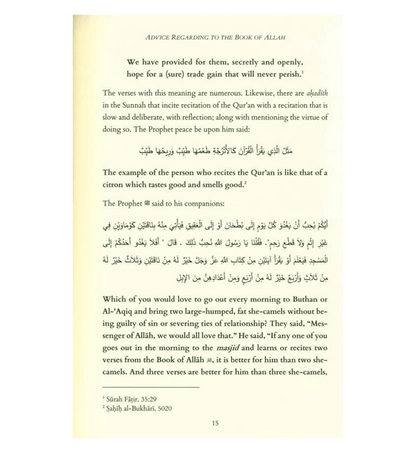 ADVICE REGARDING TO THE BOOK OF ALLAH
We have provided for them, secretly and openly,
hope for a (sure) trade gain that will never perish.¹
The verses with this meaning are numerous. Likewise, there are aḥadīth
in the Sunnah that incite recitation of the Qur’an with a recitation that is
slow and deliberate, with reflection; along with mentioning the virtue of
doing so. The Prophet peace be upon him said:
مَثَلُ الَّذِي يَقْرَأُ الْقُرْآنَ كَالأُتْرُجَّةِ طَعْمُهَا طَيِّبٌ وَرِيحُهَا طَيِّبٌ
The example of the person who recites the Qur’an is like that of a
citron which tastes good and smells good.²
The Prophet ﷺ said to his companions:
أَيُّكُمْ يُحِبُّ أَنْ يَغْدُوَ كُلَّ يَوْمٍ إِلَى بُطْحَانَ أَوْ إِلَى الْعَقِيقِ فَيَأْتِيَ مِنْهُ بِنَاقَتَيْنِ كَوْمَاوَيْنِ فِي
غَيْرِ إِثْمٍ وَلاَ قَطْعِ رَحِمٍ". فَقُلْنَا يَا رَسُولَ اللهِ نُحِبُّ ذَلِكَ . قَالَ " أَفَلاَ يَغْدُو أَحَدُكُمْ إِلَى
الْمَسْجِدِ فَيَعْلَمَ أَوْ يَقْرَأَ آيَتَيْنِ مِنْ كِتَابِ اللهِ عَزَّ وَجَلَّ خَيْرٌ لَهُ مِنْ نَاقَتَيْنِ وَثَلاَثٌ خَيْرٌ لَهُ
مِنْ ثَلاَثٍ وَأَرْبَعٌ خَيْرٌ لَهُ مِنْ أَرْبَعٍ وَمِنْ أَعْدَادِهِنَّ مِنَ الإِبِلِ
Which of you would love to go out every morning to Buthan or
Al-‘Aqiq and bring two large-humped, fat she-camels without be-
ing guilty of sin or severing ties of relationship? They said, “Mes-
senger of Allāh, we would all love that.” He said, “If any one of you
goes out in the morning to the masjid and learns or recites two
verses from the Book of Allah ﷻ, it is better for him than two she-
camels. And three verses are better for him than three she-camels,
¹ Sūrah Fāṭir, 35:29
² Ṣaḥīḥ al-Bukhārī, 5020
15